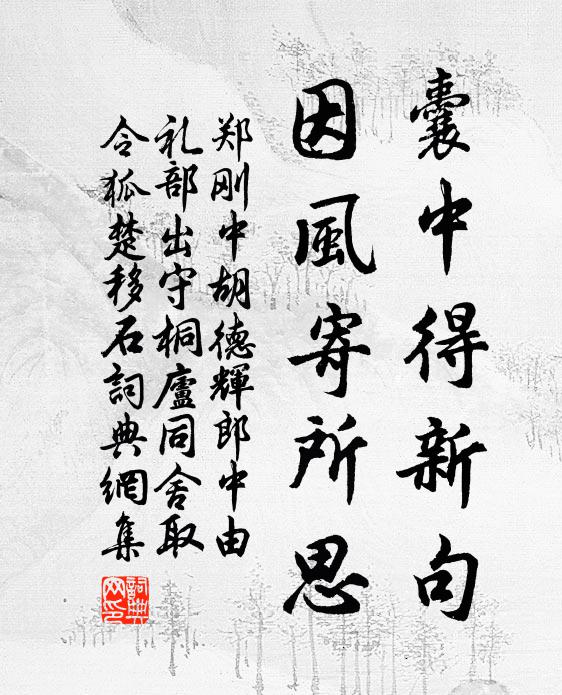 囊中得新句
因風寄所思
郑刚中胡德輝郎中由
礼部出守桐廬同舍取
令狐楚移石詞典網集
詞典网印